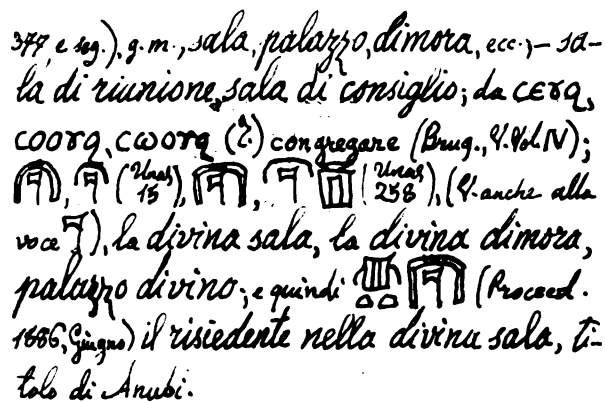 377, e seg.), g. m., sala, palazzo, dimora, ecc.; — sa-
la di riunione, sala di consiglio; da ⲥⲉⲟⲩϩ,
ⲥⲟⲟⲩϩ, ⲥⲱⲟⲩϩ (?) congregare (Brug., V. Vol. IV);
, (Unas 15), , (Unas 258), (V. anche alla
voce ), la divina sala, la divina dimora,
palazzo divino; e quindi (Proceed.
1886, Giugno) il risiedente nella divina sala, ti-
tolo di Anubi.